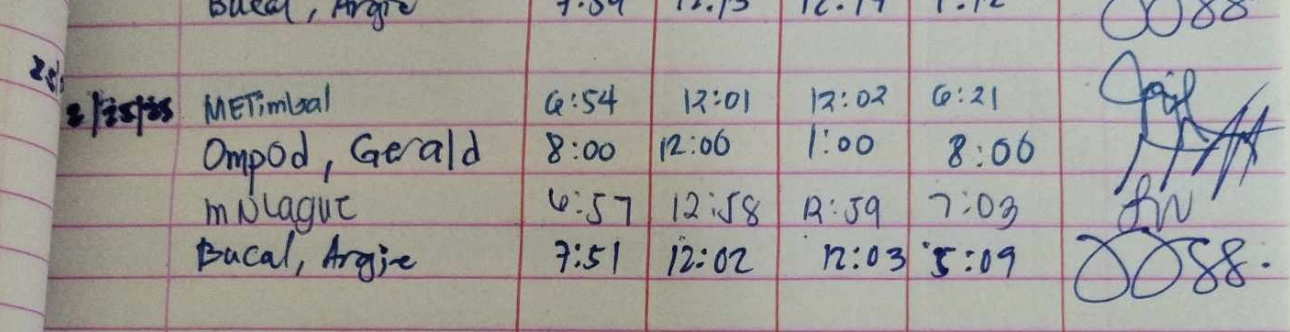 Bucal, Argie 7:59 12:13 12:14 1:12
2/25/25 METimbal 6:54 12:01 12:02 6:21
Ompod, Gerald 8:00 12:06 1:00 8:06
mNLague 6:57 12:58 12:59 7:03
Bucal, Argie 7:51 12:02 12:03 5:09